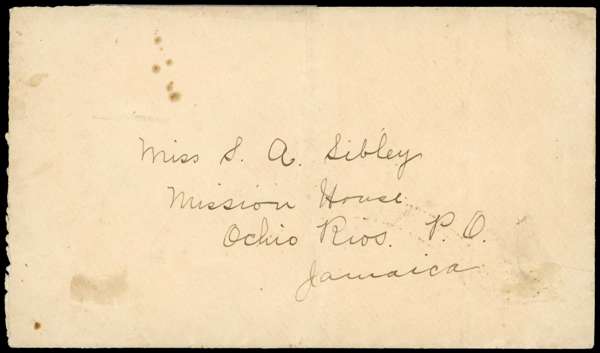 Miss S. A. Sibley
Mission House
Ochio Rios. P. O.
Jamaica